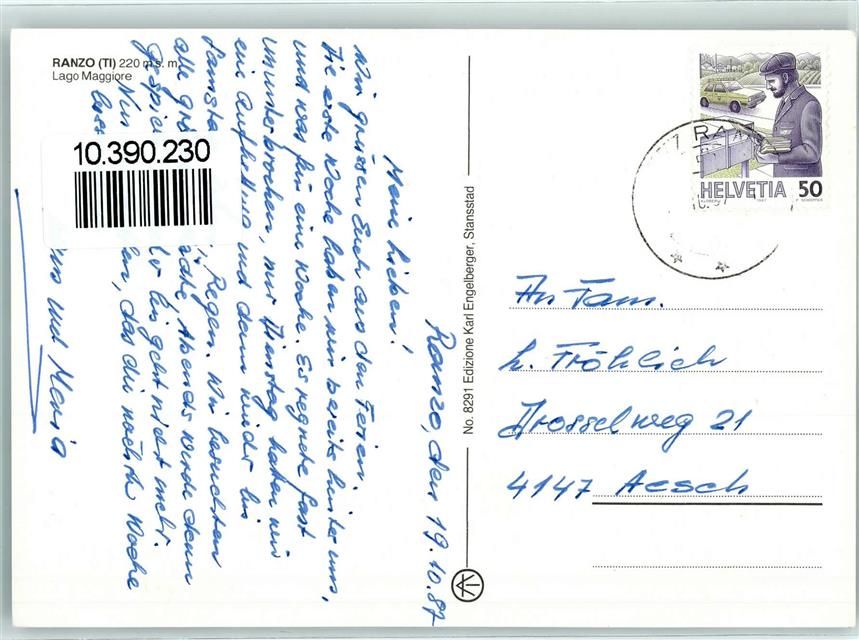 RANZO (TI) 220 m s. m.
Lago Maggiore
10.390.230
Ranzo, den 19.10.87
Meine Lieben!
Wir grüssen Euch aus den Ferien.
Die erste Woche haben wir bereits hinter uns,
und was für eine Woche. Es regnete fast
ununterbrochen, nur Dienstag hatten wir
ein Aufhellung und dann wieder bis
Samstag Regen. Wir besuchten
alle Abends wurde dann
geht nicht mehr.
Nun das die nächste Woche
und Maria
No. 8291 Edizione Karl Engelberger, Stansstad
HELVETIA 50
1987
An Fam.
H. Fröhlich
Drosselweg 21
4147 Aesch